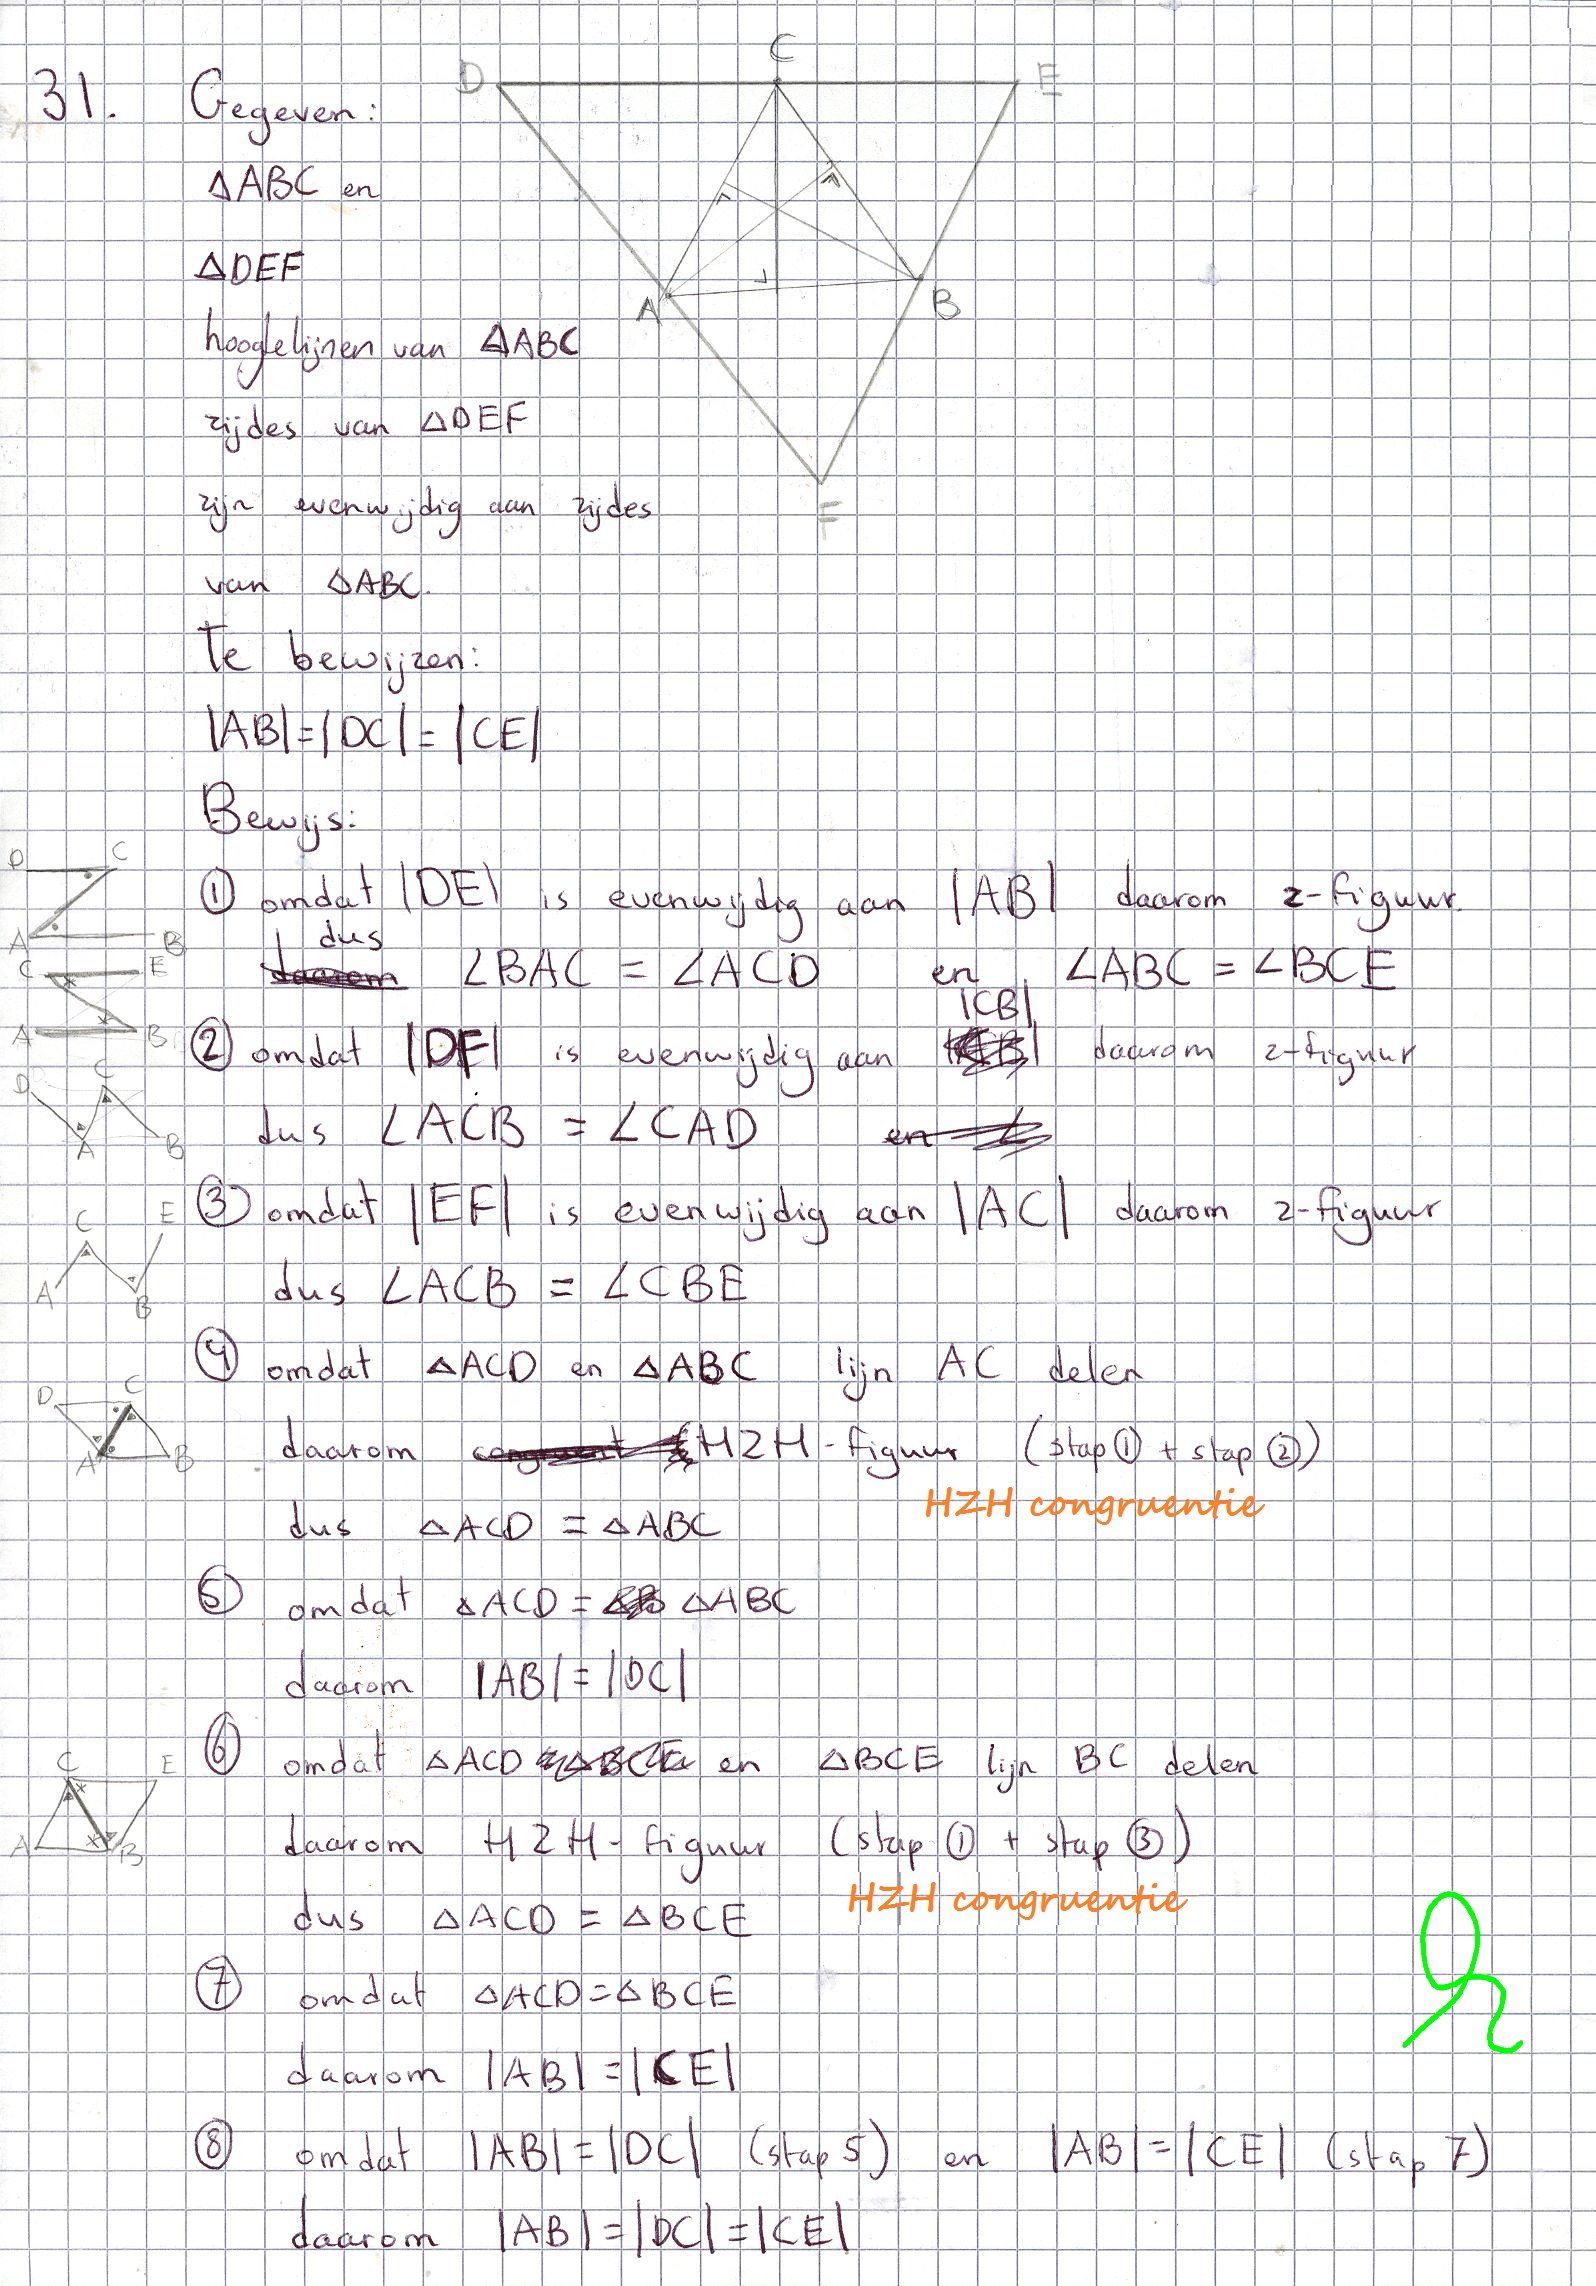 31. Gegeven:
D C E
ΔABC en
ΔDEF
A B
hoogtelijnen van ΔABC
zijdes van ΔDEF
F
zijn evenwijdig aan zijdes
van ΔABC.
Te bewijzen:
|AB|=|DC|=|CE|
Bewijs:
D C
A B
① omdat |DE| is evenwijdig aan |AB| daarom z-figuur.
dus ∠BAC = ∠ACD en ∠ABC = ∠BCE
C E
A B
|CB|
② omdat |DF| is evenwijdig aan daarom z-figuur
D C
A B
dus ∠ACB = ∠CAD
③ omdat |EF| is evenwijdig aan |AC| daarom z-figuur
C E
A B
dus ∠ACB = ∠CBE
④ omdat ΔACD en ΔABC lijn AC delen
D C
A B
daarom HZH-figuur (stap ① + stap ②)
HZH congruentie
dus ΔACD = ΔABC
⑤ omdat ΔACD = ΔABC
daarom |AB|=|DC|
⑥ omdat ΔACD en ΔBCE lijn BC delen
C E
A B
daarom HZH-figuur (stap ① + stap ③)
HZH congruentie
dus ΔACD = ΔBCE
⑦ omdat ΔACD=ΔBCE
daarom |AB|=|CE|
⑧ omdat |AB|=|DC| (stap 5) en |AB|=|CE| (stap 7)
daarom |AB|=|DC|=|CE|